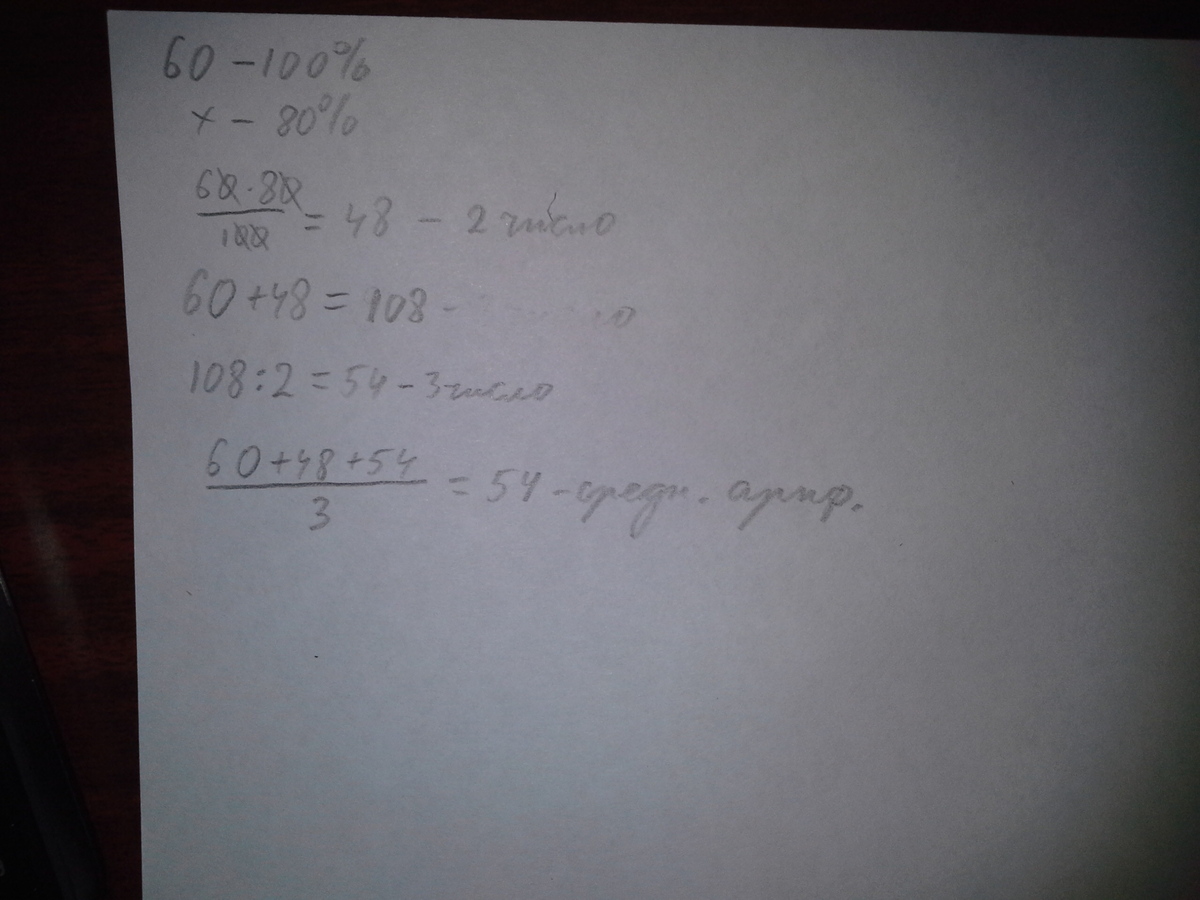 60 - 100%
x - 80%
60 · 80
100 = 48 - 2 число
60 + 48 = 108 -
108 : 2 = 54 - 3 число
60 + 48 + 54
3 = 54 - средн. ариф.